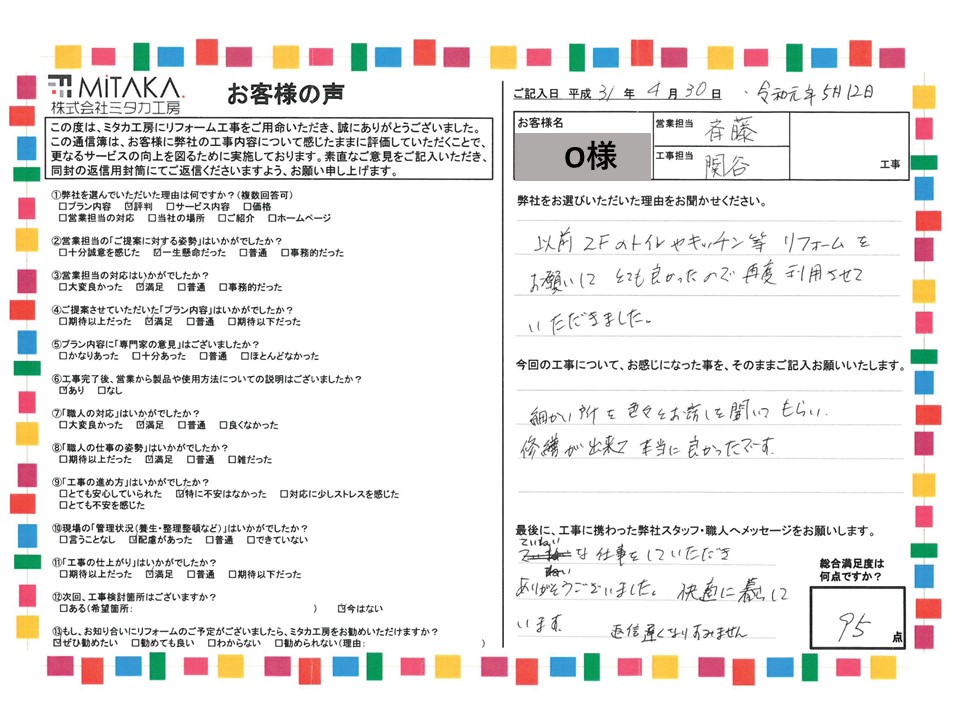 MiTAKA.
株式会社ミタカ工房
お客様の声
この度は、ミタカ工房にリフォーム工事をご用命いただき、誠にありがとうございました。
この通信簿は、お客様に弊社の工事内容について感じたままに評価していただくことで、
更なるサービスの向上を図るために実施しております。素直なご意見をご記入いただき、
同封の返信用封筒にてご返信くださいますよう、お願い申し上げます。
①弊社を選んでいただいた理由は何ですか?(複数回答可)
□プラン内容 ☑評判 □サービス内容 □価格
□営業担当の対応 □当社の場所 □ご紹介 □ホームページ
②営業担当の「ご提案に対する姿勢」はいかがでしたか?
□十分誠意を感じた ☑一生懸命だった □普通 □事務的だった
③営業担当の対応はいかがでしたか?
□大変良かった ☑満足 □普通 □事務的だった
④ご提案させていただいた「プラン内容」はいかがでしたか?
□期待以上だった ☑満足 □普通 □期待以下だった
⑤プラン内容に「専門家の意見」はございましたか?
□かなりあった □十分あった □普通 □ほとんどなかった
⑥工事完了後、営業から製品や使用方法についての説明はございましたか?
☑あり □なし
⑦「職人の対応」はいかがでしたか?
□大変良かった ☑満足 □普通 □良くなかった
⑧「職人の仕事の姿勢」はいかがでしたか?
□期待以上だった ☑満足 □普通 □雑だった
⑨「工事の進め方」はいかがでしたか?
□とても安心していられた ☑特に不安はなかった □対応に少しストレスを感じた
□とても不安を感じた
⑩現場の「管理状況(養生・整理整頓など)」はいかがでしたか?
□言うことなし ☑配慮があった □普通 □できていない
⑪「工事の仕上がり」はいかがでしたか?
□期待以上だった ☑満足 □普通 □期待以下だった
⑫次回、工事検討箇所はございますか?
□ある(希望箇所: ) ☑今はない
⑬もし、お知り合いにリフォームのご予定がございましたら、ミタカ工房をお勧めいただけますか?
☑ぜひ勧めたい □勧めても良い □わからない □勧められない(理由: )
ご記入日 平成 31 年 4 月 30 日 ・令和元年5月12日
お客様名
O様
営業担当 斉藤
工事担当 関谷
工事
弊社をお選びいただいた理由をお聞かせください。
以前 2Fのトイレやキッチン等 リフォームを
お願いして とても良かったので 再度 利用させて
いただきました。
今回の工事について、お感じになった事を、そのままご記入お願いします。
細かい所を 色々とお話しを聞いてもらい.
修繕が出来て 本当に良かったです.
最後に、工事に携わった弊社スタッフ・職人へメッセージをお願いします。
ていねい
な 仕事をしていただき
ありがとうございました。 快適に暮して
います. 返信遅くなりすみません
総合満足度は
何点ですか?
95 点